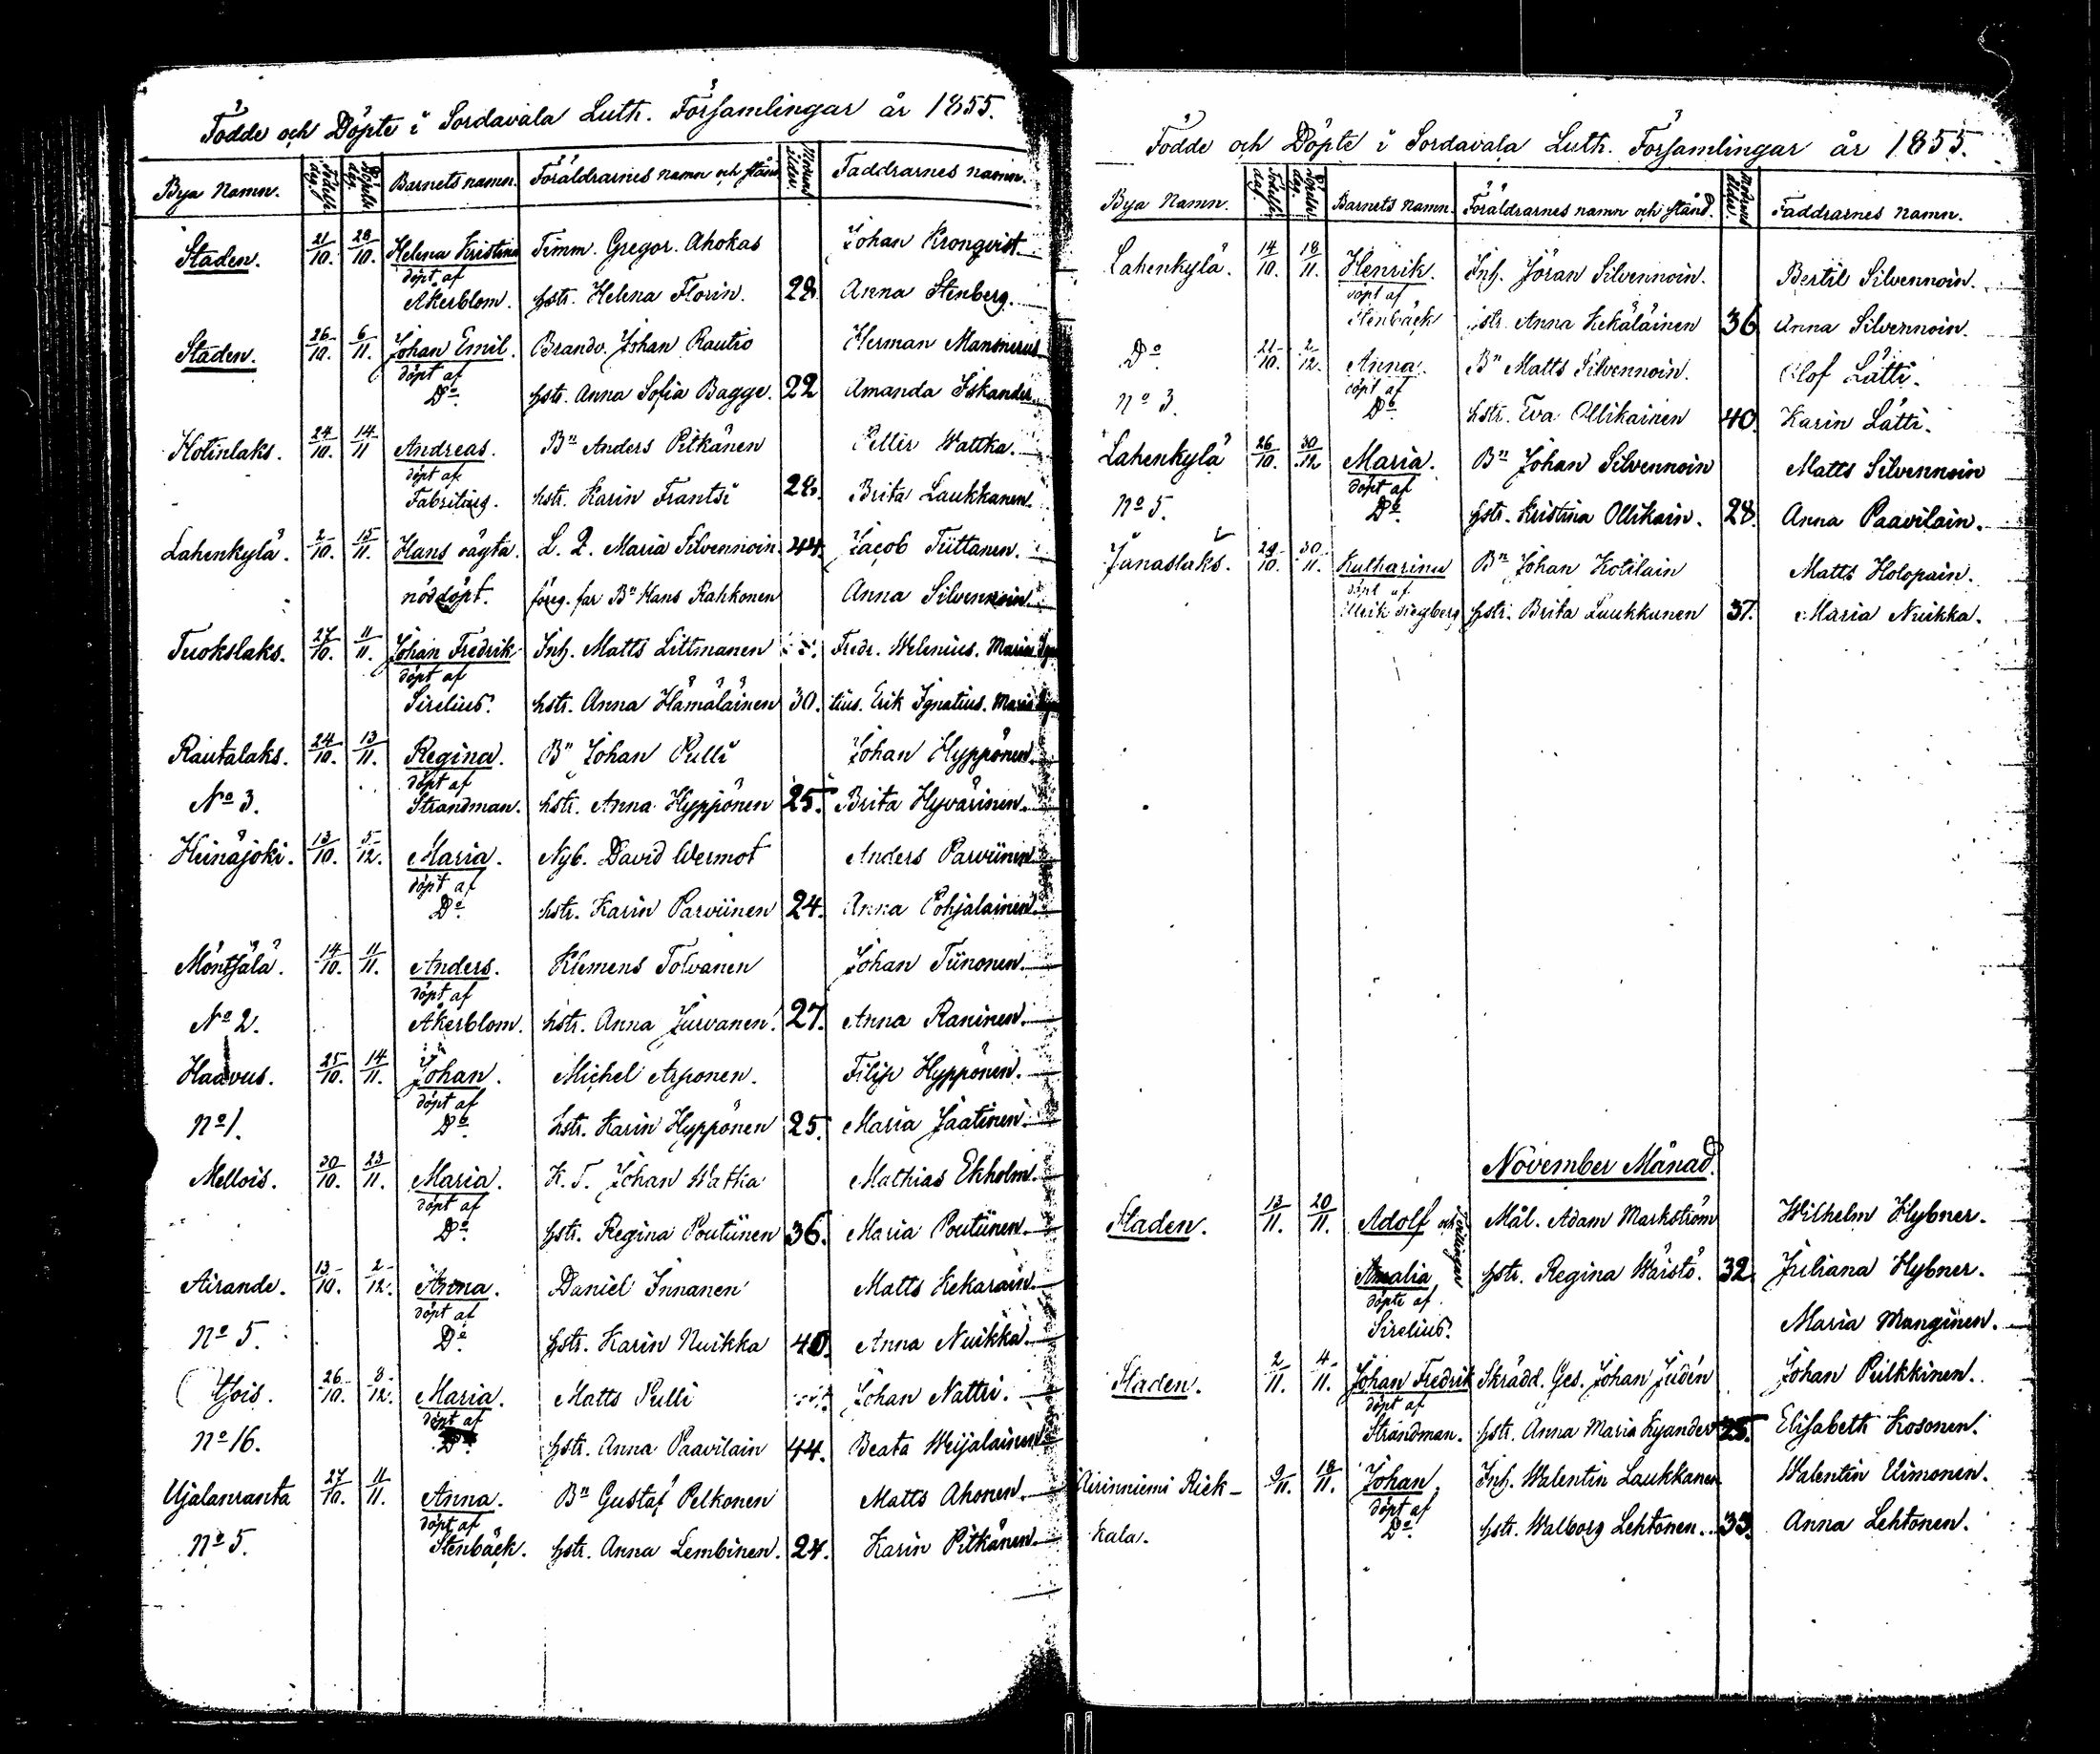 Födde och Döpte i Sordavala Luth. Församlingar år 1855.
Bya Namn. Födelse dag. Döpelse dag. Barnets namn. Föräldrarnes namn och stånd Modrens ålder. Faddrarnes namn.
Staden. 21/10. 28/10. Helena Kristina Timm. Gregor. Ahokas Johan Kronqvist.
döpt af
Åkerblom. hstr. Helena Florin. 28. Anna Stenberg.
Staden. 26/10. 6/11. Johan Emil. Brandv. Johan Rautio Herman
döpt af
Do. hstr. Anna Sofia Bagge. 22 Amanda
Hotinlaks. 24/10. 14/11 Andreas. Bn Anders Pitkänen Petter Wattka.
döpt af
Fabritius. hstr. Karin Frantsi 28. Brita Laukkanen.
Lahenkylä. 2/10. 15/11. Hans oägta. L. Q. Maria Silvennoin 44. Jacob Tiittanen.
nöddöpt. föreg. far Bn Hans Kahkonen Anna Silvennoin.
Tuokslaks. 27/10. 11/11. Johan Fredrik Inh. Matts Littmanen Fredr. Welenius. Maria
döpt af
Sirelius. hstr. Anna Hämäläinen 30. tius. Erik Ignatius. Maria
Rautalaks. 24/10. 13/11. Regina. Bn Johan Pulli Johan Hyppönen.
döpt af
No 3. Strandman. hstr. Anna Hyppönen 25. Brita Hyvärinen.
Heinäjoki. 13/10. 5/12. Maria. Nyb. David Wermot Anders Parviinen
döpt af
Do. hstr. Karin Parviinen 24. Anna Pohjalainen.
Möntsälä. 14/10. 11/11. Anders. Klemens Tolvanen Johan Tiinonen.
döpt af
No 2. Åkerblom. hstr. Anna Jurvanen. 27. Anna Raninen.
Haavus. 25/10. 14/11. Johan. Michel Asponen. Filip Hyppönen.
döpt af
No 1. Do. hstr. Karin Hyppönen 25. Maria Jaatinen.
Mellois. 30/10. 23/11. Maria. K. T. Johan Watka Mathias Ekholm.
döpt af
Do. hstr. Regina Poutiinen 36. Maria Poutiinen.
Airande. 13/10. 2/12. Anna. Daniel Innanen Matts Kekarain
döpt af
No 5. Do. hstr. Karin Nuikka 40. Anna Nuikka.
Otsois. 26/10. 8/12. Maria. Matts Pulli Johan Nattri.
döpt af
No 16. Do. hstr. Anna Paavilain 44. Beata Weijalainen
Ujalanranta 27/10. 11/11. Anna. Bn Gustaf Pelkonen Matts Ahonen.
döpt af
No 5. Stenbäck. hstr. Anna Lembinen. 24. Karin Pitkänen.
Födde och Döpte i Sordavala Luth. Församlingar år 1855.
Bya Namn. Födelse dag. Döpelse dag. Barnets namn. Föräldrarnes namn och stånd. Modrens ålder. Faddrarnes namn.
Lahenkylä. 14/10. 18/11. Henrik. Inh. Jöran Silvennoin. Bertil Silvennoin.
döpt af
Stenbäck hstr. Anna Kekäläinen 36 Anna Silvennoin.
Do. 21/10. 2/12. Anna. Bn Matts Silvennoin. Olof Lätti.
döpt af
No 3. Do. hstr. Eva Ollikainen 40. Karin Lätti.
Lahenkylä 26/10. 30/12 Maria. Bn Johan Silvennoin Matts Silvennoin
döpt af
No 5. Do. hstr. Kristina Ollikain. 28. Anna Paavilain.
Janaslaks. 29/10. 30/11. Katharina Bn Johan Kotilain Matts Holopain.
döpt af
Ulrik Siegberg hstr. Brita Laukkanen 37. Maria Nuikka.
November Månad.
Staden. 13/11. 20/11. Adolf och Tvillingar Mål. Adam Markström Wilhelm Hybner.
Amalia hstr. Regina Wäistö. 32. Juliana Hybner.
döpte af
Sirelius. Maria Manginen.
Staden. 2/11. 4/11. Johan Fredrik Skrädd. Ges. Johan Judén Johan Pulkkinen.
döpt af
Strandman. hstr. Anna Maria Kyander 25. Elisabeth Kosonen.
Airinniemi Riek- 9/11. 18/11. Johan. Inh. Walentin Laukkanen Walentin Uimonen.
döpt af
kala. Do. hstr. Walborg Lehtonen. 33. Anna Lehtonen.